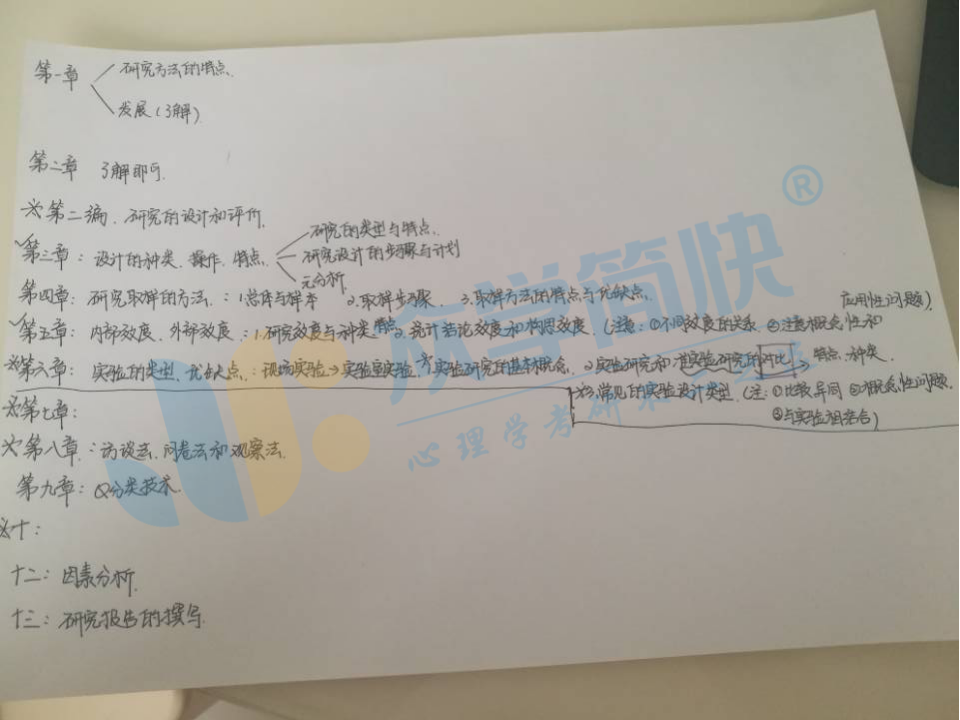 第一章 研究方法的特点.
发展(了解)
第二章 了解即可.
※第二编. 研究的设计和评价.
√第三章: 设计的种类. 操作. 特点. 研究的类型与特点.
研究设计的步骤与计划
元分析
第四章: 研究取样的方法.: 1.总体与样本 2.取样步骤. 3.取样方法的特点与优缺点.
√第五章: 内部效度. 外部效度.: 1.研究效度与种类 特点 2.统计结论效度和构思效度. (注意: ①不同效度的关系. ②注意概念性和
应用性问题)
※第六章: 实验的类型. 优缺点.: 现场实验→实验室实验. 1.实验研究的基本概念. 2.实验研究和准实验研究的对比→特点. 种类.
3.常见的实验设计类型. (注: ①比较异同 ②概念性问题.
③与实验相结合)
※第七章:
※第八章: 访谈法. 问卷法和观察法.
第九章: Q分类技术.
※十:
十二: 因素分析.
十三: 研究报告的撰写.
众学简快®
心理学考研